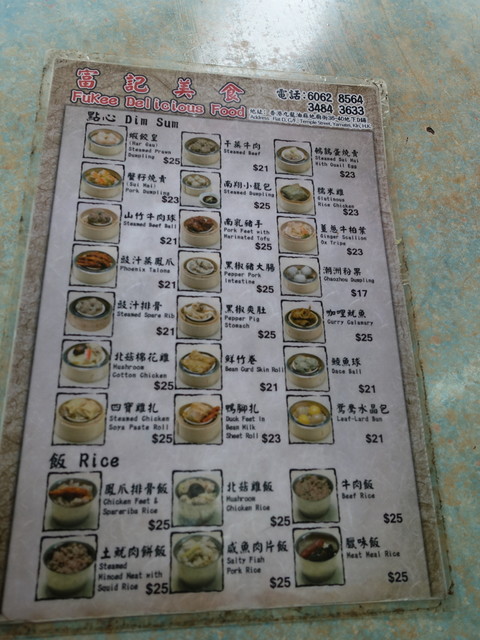 富記美食
FuKee Delicious Food
電話:6062 8564
3484 3633
點心 Dim Sum
蝦餃皇
(Har Gau)
Steamed Prawn
Dumpling
$25
干蒸牛肉
Steamed Beef
$21
鵪鶉蛋燒賣
Steamed Sui Mai
With Quail Egg
$23
蟹籽燒賣
(Sui Mai)
Pork Dumpling
$23
南翔小籠包
Steamed Dumpling
$25
糯米雞
Glutinous
Rice Chicken
$23
山竹牛肉球
Steamed Beef Ball
$21
南乳豬手
Pork Feet with
Marinated Tofu
$25
薑葱牛柏葉
Ginger Scallion
Ox Tripe
$23
豉汁蒸鳳爪
Phoenix Talons
$21
黑椒豬大腸
Pepper Pork
Intestine
$25
潮洲粉果
Chaozhou Dumpling
$17
豉汁排骨
Steamed Spare Rib
$21
黑椒爽肚
Pepper Pig
Stomach
$25
咖哩魷魚
Curry Calamary
$25
北菇棉花雞
Mushroom
Cotton Chicken
$25
鮮竹卷
Bean Curd Skin Roll
$21
鯪魚球
Dace Ball
$21
四寶雞扎
Steamed Chicken
Soya Paste Roll
$25
鴨腳扎
Duck Feet In
Bean Milk
Sheet Roll
$23
鴛鴦水晶包
Leaf-Lard Bun
$21
飯 Rice
鳳爪排骨飯
Chicken Feet &
Spareribs Rice
$25
北菇雞飯
Mushroom
Chicken Rice
$25
牛肉飯
Beef Rice
$25
土魷肉餅飯
Steamed
Minced Meat with
Squid Rice
$25
咸魚肉片飯
Salty Fish
Pork Rice
$25
臘味飯
Meat Meal Rice
$25